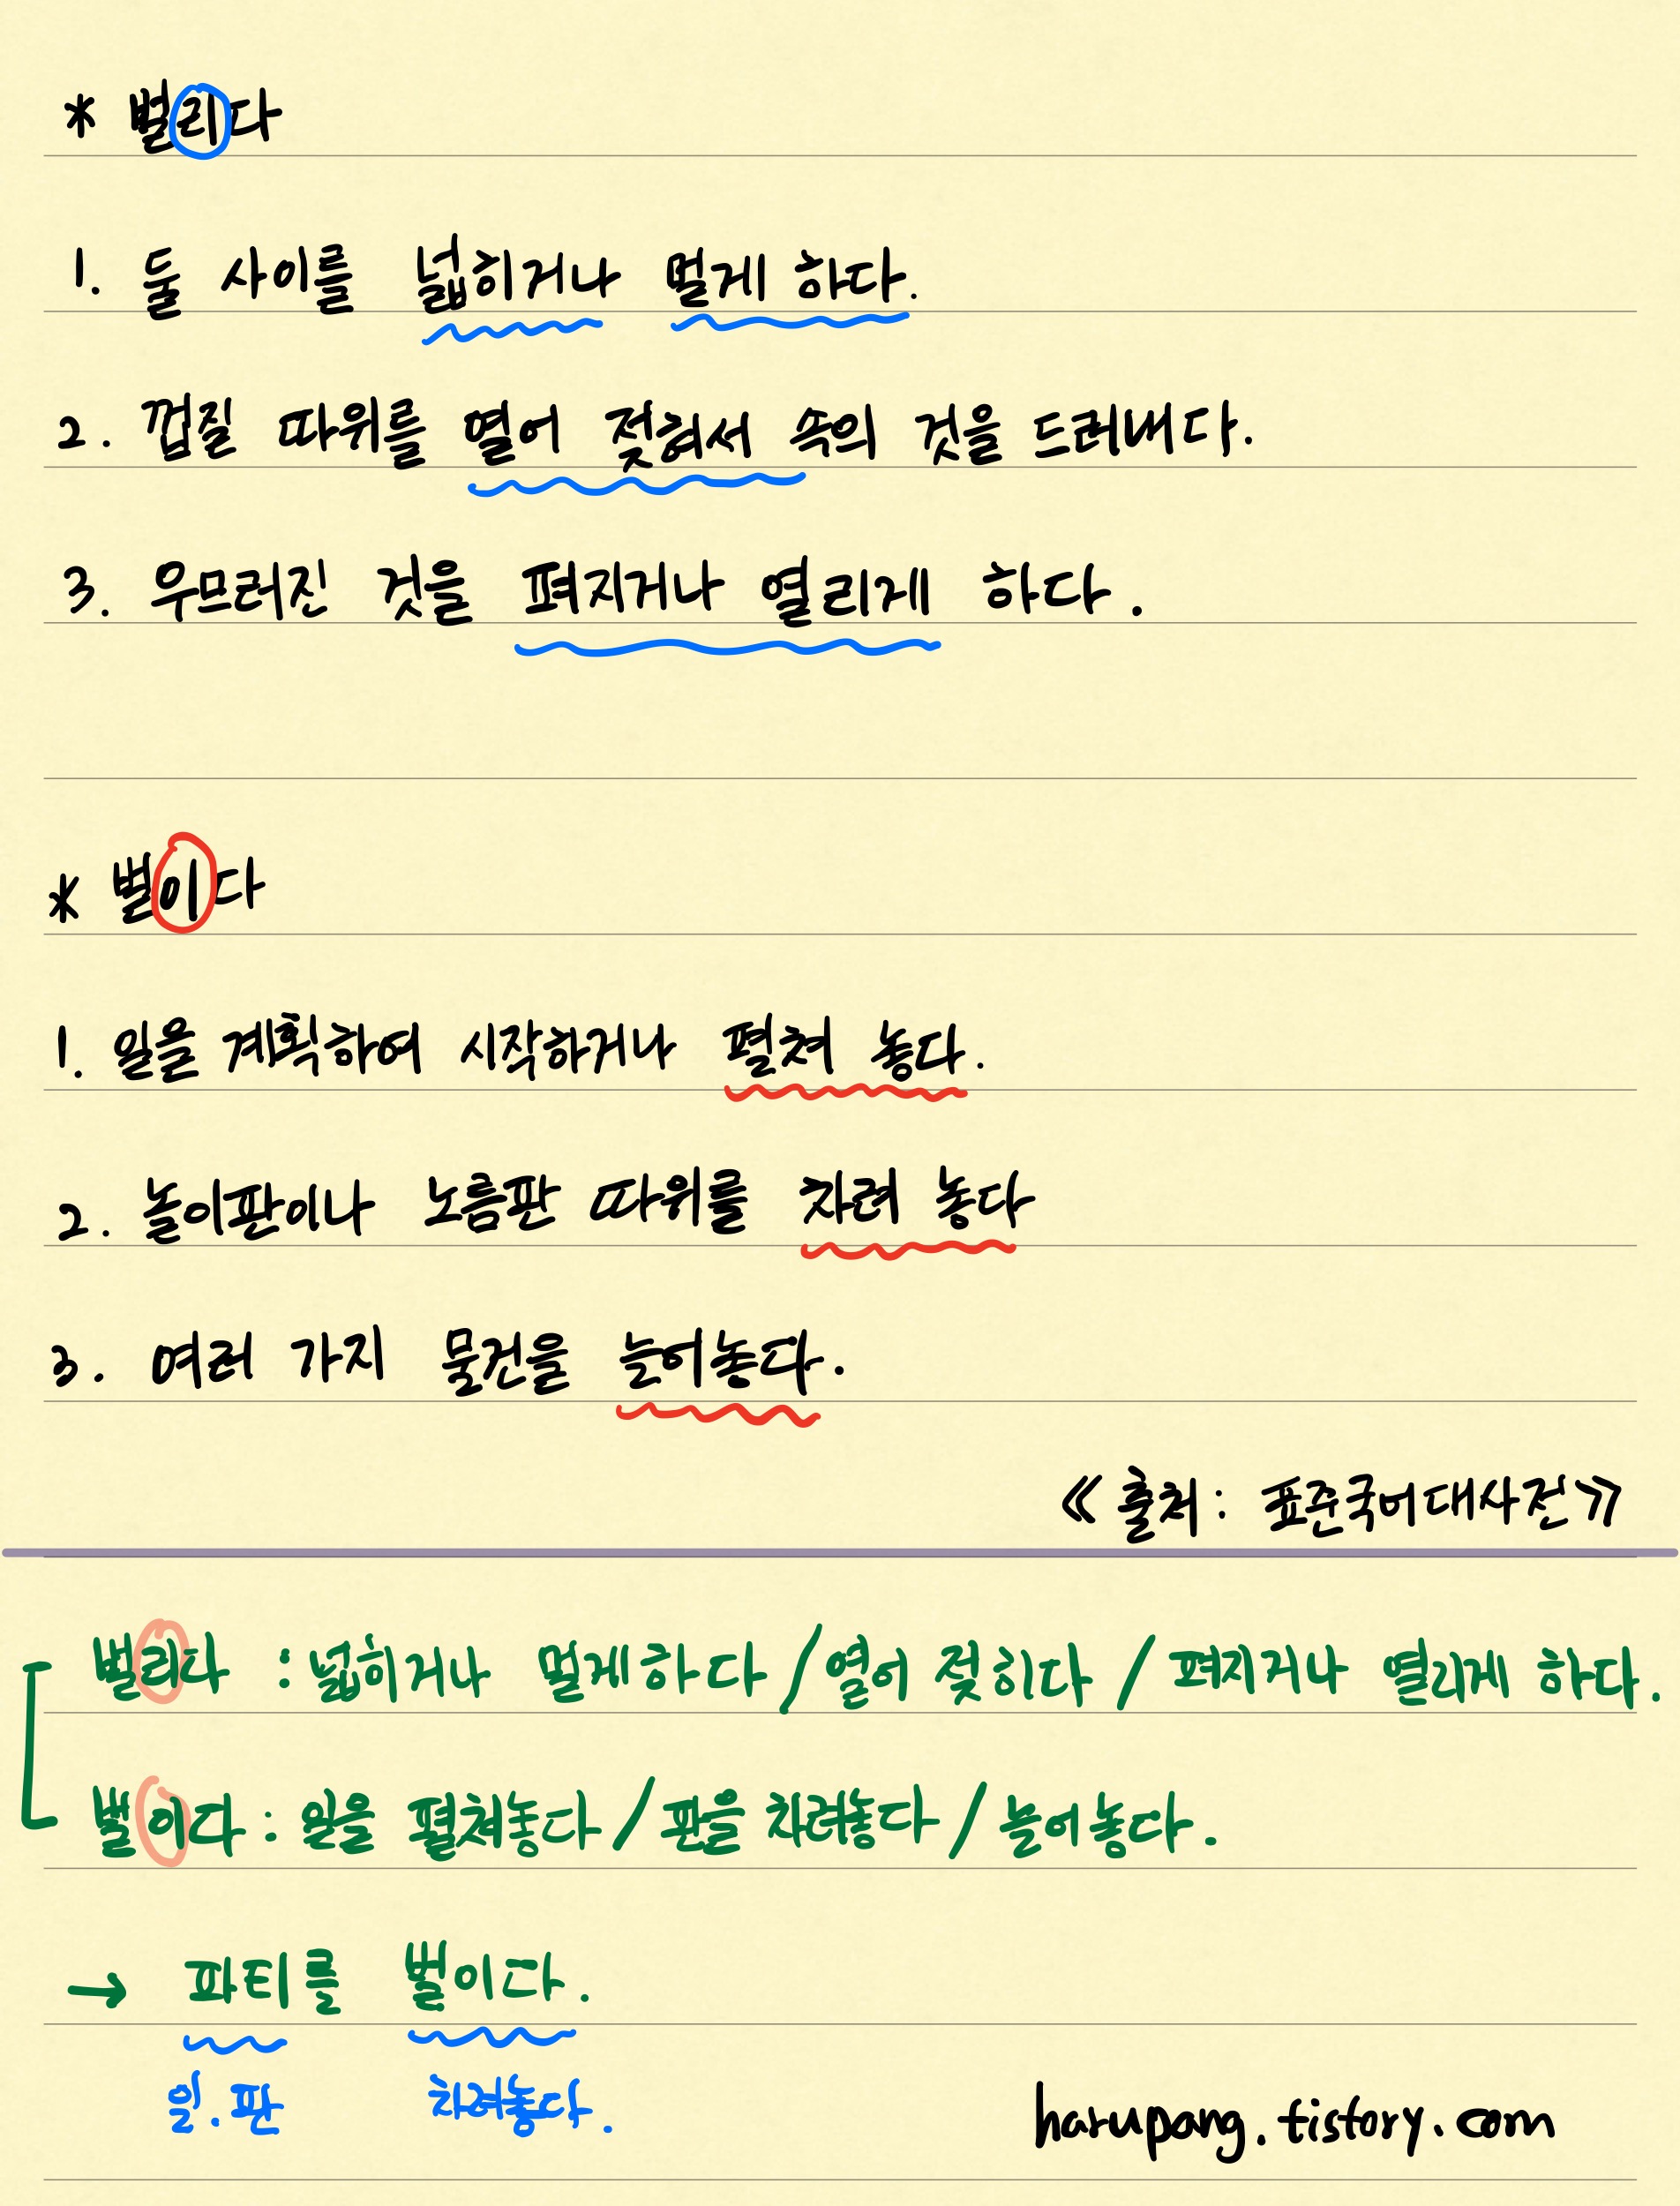 * 벌리다
1. 둘 사이를 넓히거나 멀게 하다.
2. 껍질 따위를 열어 젖혀서 속의 것을 드러내다.
3. 우므러진 것을 펴지거나 열리게 하다.
* 벌이다
1. 일을 계획하여 시작하거나 펼쳐 놓다.
2. 놀이판이나 노름판 따위를 차려 놓다
3. 여러 가지 물건을 늘어놓다.
《출처: 표준국어대사전》
벌리다 : 넓히거나 멀게하다 / 열어 젖히다 / 펴지거나 열리게 하다.
벌이다 : 일을 펼쳐놓다 / 판을 차려놓다 / 늘어놓다.
→ 파티를 벌이다.
일.판 차려놓다.
harupang.tistory.com